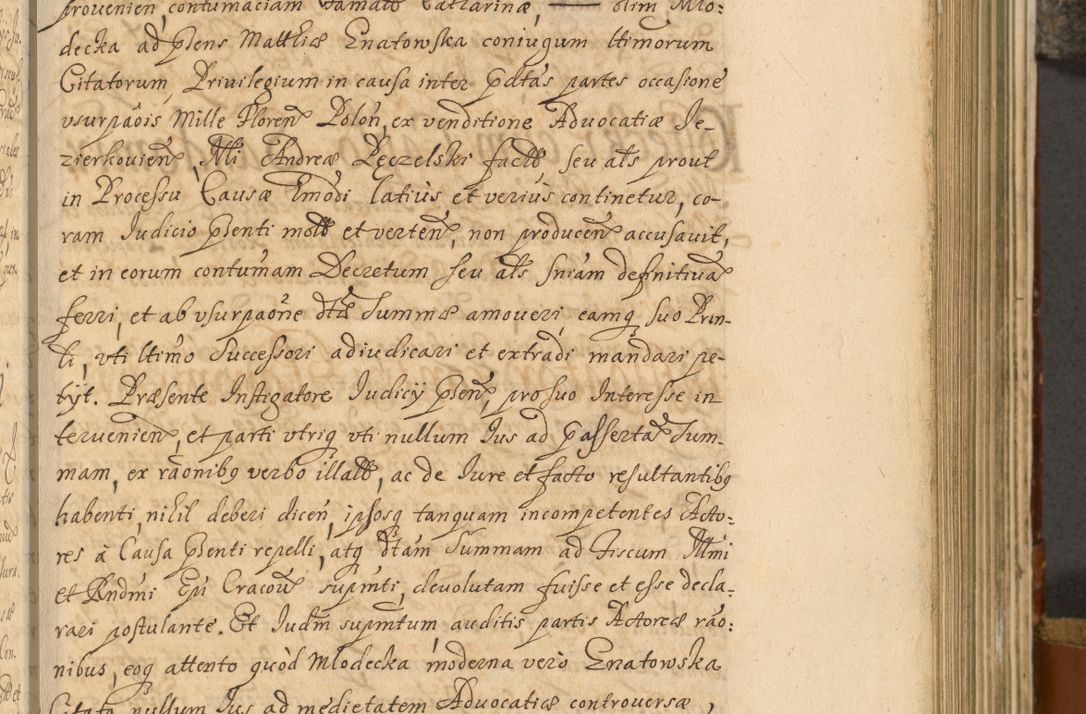 provenien, contumaciam Famatt Catharinæ, —— olim Mło-
decka ad psens Matthiæ Gnatowska coniugum ltimorum
Citatorum, Privilegium in causa inter pdtas partes occasione
vsurpaōis Mille Floren Polon, ex venditione Advocatiæ Je-
zierkovien, Mci Andreæ Pęczelski factt seu als prout
in Processu Causæ Emōdi latius et verius continetur, co-
ram Judicio psenti mott et verten, non producen accusavit,
et in eorum contumam Decretum seu als sniam definitiva
ferri, et ab vsurpaōne dtæ Summæ amoveri, eamq suo Prin-
ti, vti ltimo Successori adiudicari et extradi mandari pe-
tyt. Præsente Instigatore Judicij psen, pro suo Interesse in
tervenien, et parti vtriq vti nullum Jus ad passerta Sum-
mam, ex raōnibq verbo illatt, ac de Jure et facto resultantibq
habenti, nihil deberi dicen, ipsosq tanquam incompetentes Acto-
res à Causa psenti repelli, atq dtam Summam ad Fiscum Illmi
et Rndmi Epi Cracov supmti, devolutam fuisse et esse decla-
rari postulante. Et Judm supmtum auditis partis Actoreæ rāo-
nibus, eoq attento quòd Młodecka moderna verò Gnatowska
Citata nullum Jus ad medietatem Advocatiæ controversæ,